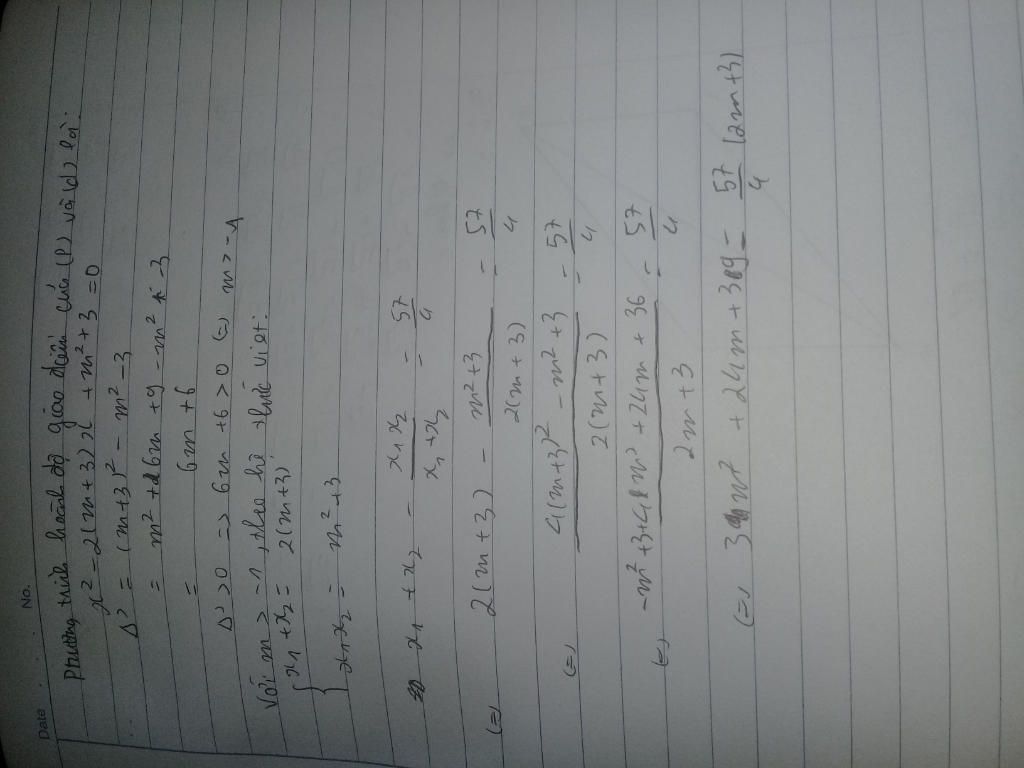 Date
No.
Phương trình hoành độ giao điểm của (P) và (d) là:
x² - 2(m+3)x + m²+3 = 0
Δ' = (m+3)² - m² - 3
= m² + 6m + 9 - m² - 3
= 6m + 6
Δ' > 0 => 6m + 6 > 0 (=) m > -1
Với m > -1, theo hệ thức viet:
{ x₁ + x₂ = 2(m+3)
x₁x₂ = m² + 3
x₁ + x₂ - x₁x₂/x₁+x₂ = 57/4
(=) 2(m+3) - m²+3/2(m+3) = 57/4
(=) 4(m+3)² - m²+3/2(m+3) = 57/4
(=) -m²+3+4m² + 24m + 36/2m+3 = 57/4
(=) 3m² + 24m + 39 = 57/4 (2m+3)